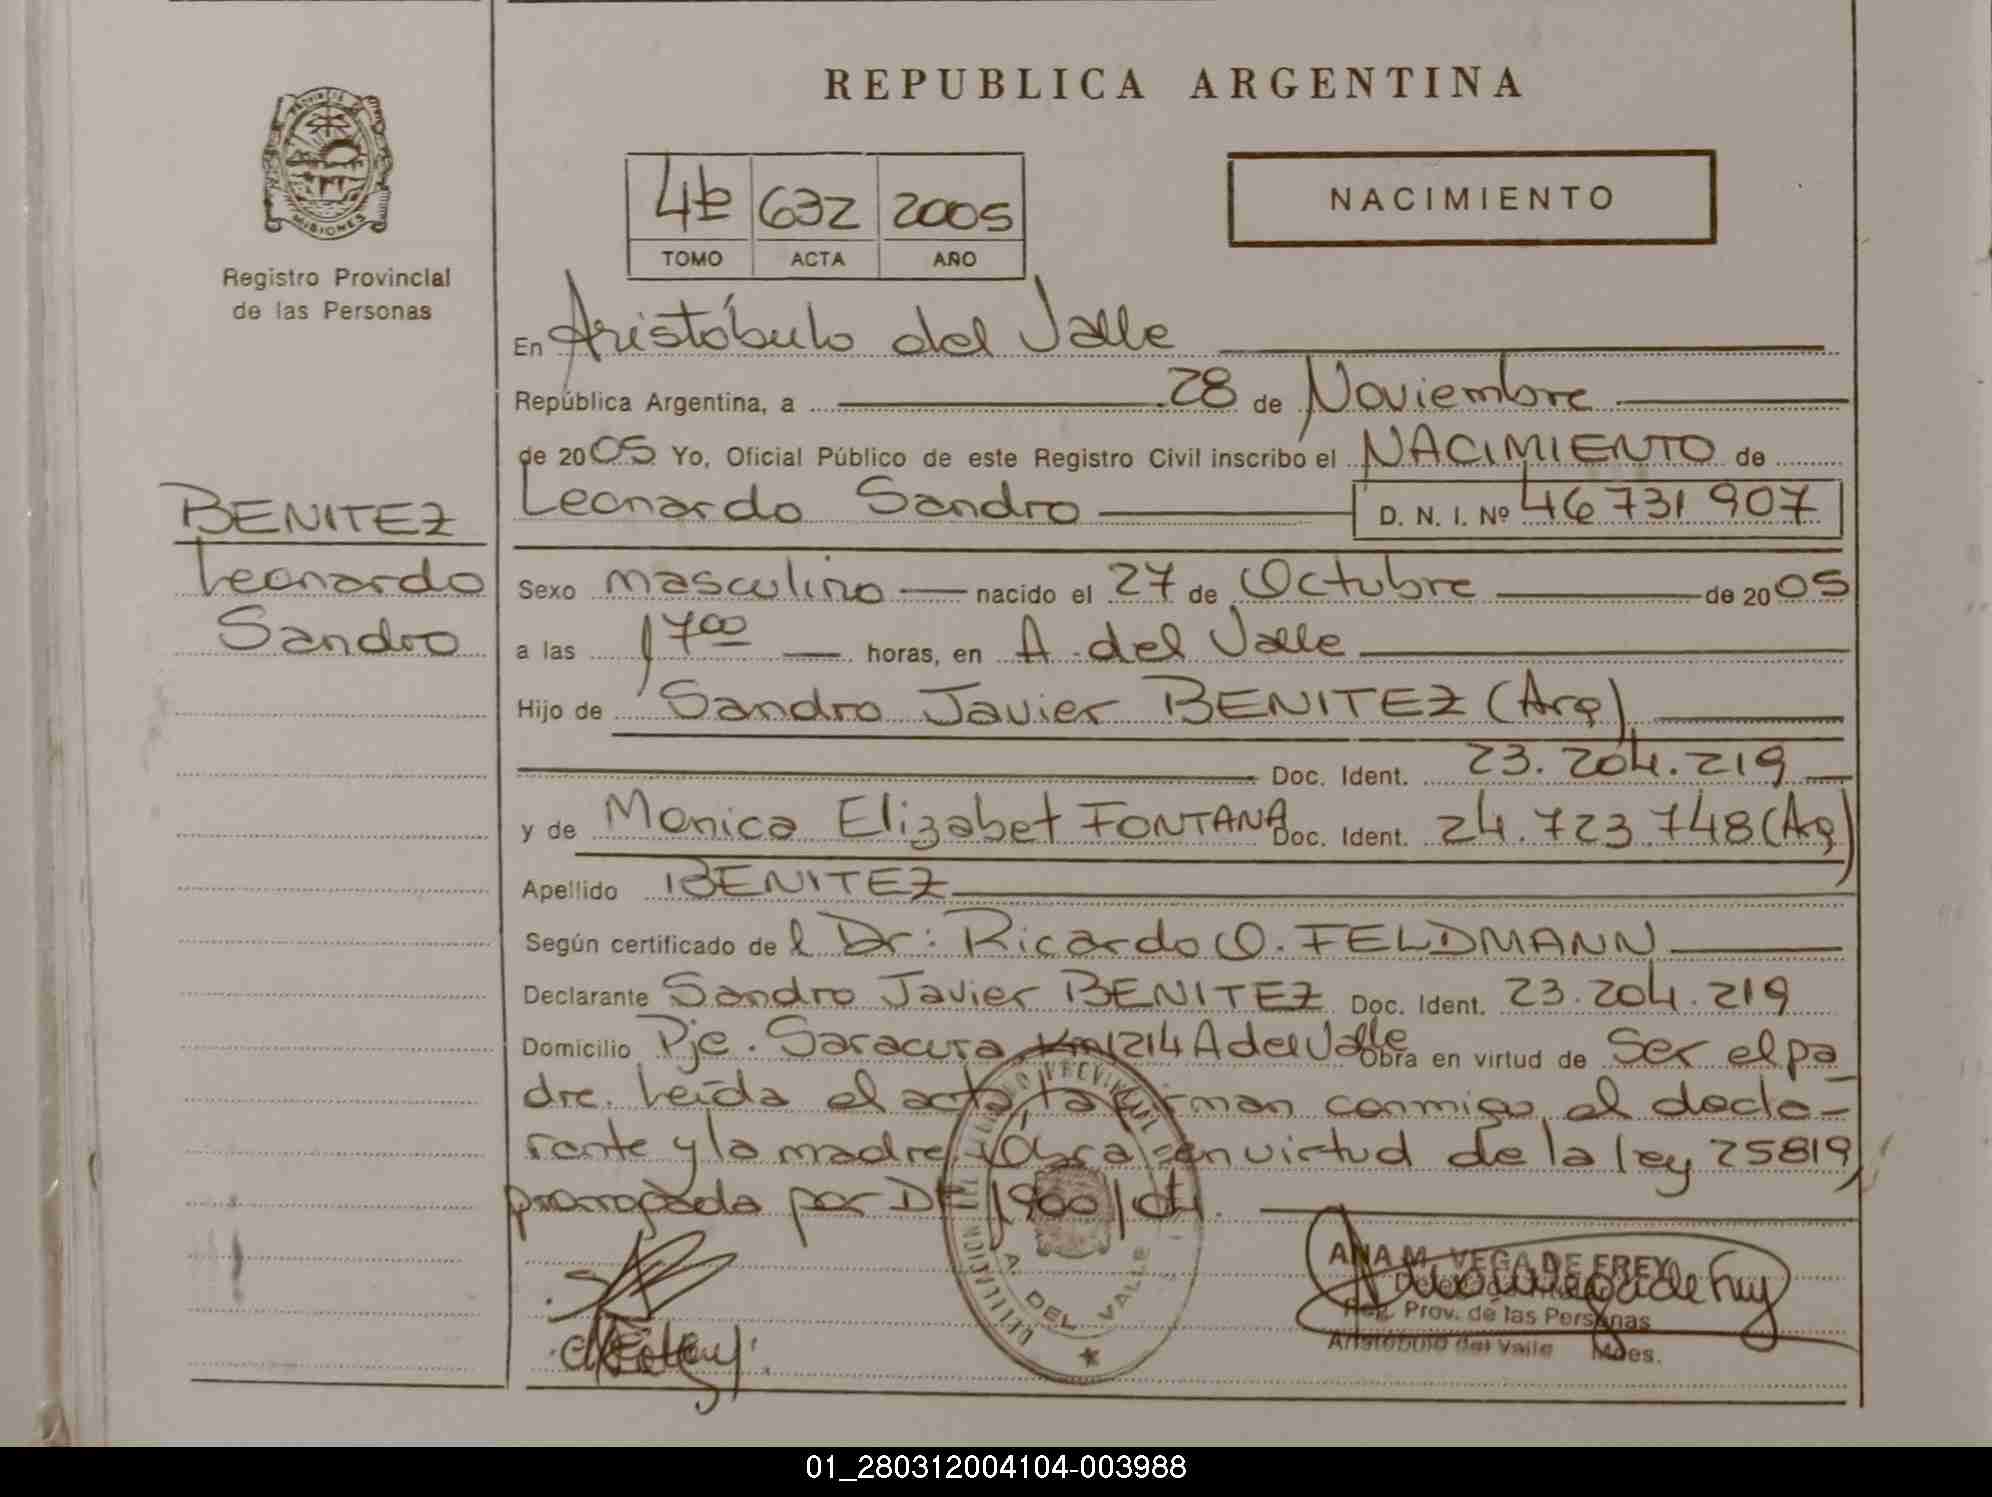 REPUBLICA ARGENTINA
PROVINCIA DE
MISIONES
Registro Provincial
de las Personas
632 2005
TOMO ACTA AÑO
NACIMIENTO
En Aristóbulo del Valle
República Argentina, a 28 de Noviembre
de 2005 Yo, Oficial Público de este Registro Civil inscribo el NACIMIENTO de
Leonardo Sandro D. N. I. Nº 46 731 907
BENITEZ
Leonardo
Sandro
Sexo masculino nacido el 27 de Octubre de 2005
a las 17 00 horas, en A. del Valle
Hijo de Sandro Javier BENITEZ (Arg)
Doc. Ident. 23.204.219
y de Monica Elizabet FONTANA Doc. Ident. 24.723.748 (Arg)
Apellido BENITEZ
Según certificado de l Dr: Ricardo O. FELDMANN
Declarante Sandro Javier BENITEZ Doc. Ident. 23.204.219
Domicilio Pje. Saracura Km 1214 A del Valle Obra en virtud de Ser el pa
dre. Leída el acta, la firman conmigo, el decla-
rante y la madre. Obra en virtud de la ley 25819,
prorrogada por 1900/04.
ANA M. VEGA DE FREY
Reg. Prov. de las Personas
Aristóbulo del Valle Mnes.
A. DEL VALLE
01_280312004104-003988